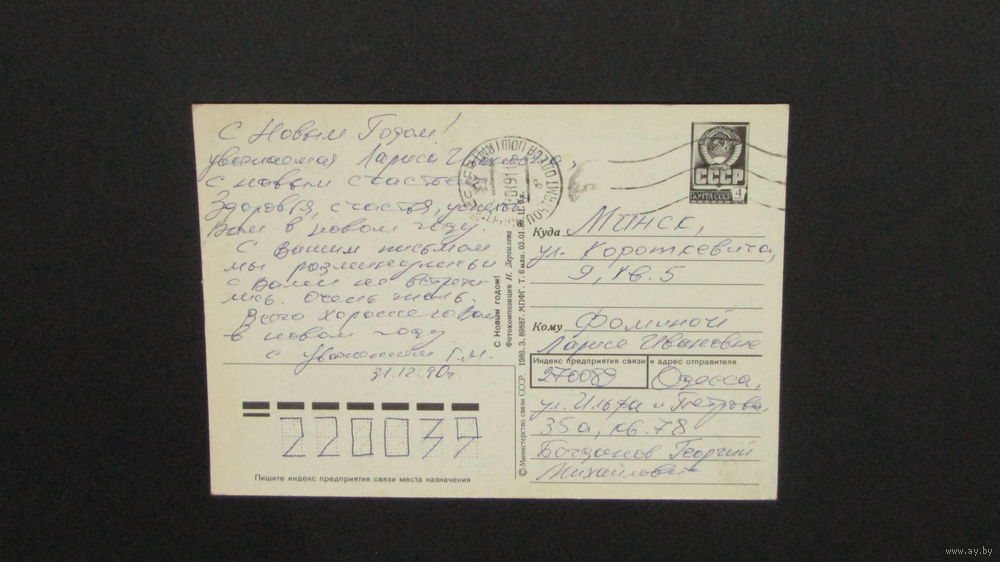 С Новым Годом!
уважаемая Лариса Ивановна,
с новым счастьем
Здоровья, счастья, успехов
Вам в новом году.
С Вашим письмом
мы разминулись и
с Вами не встрети-
лись. Очень жаль.
Всего хорошего Вам
в новом году
с уважением Г.М.
31.12.90г.
220039
Пишите индекс предприятия связи места назначения
С Новым годом!
Фотокомпозиция И. Дергилева
© Министерство связи СССР. 1989. З. 89887. МПФГ. Т. 6 млн. 03.01.89. Ц. 6 к.
ОДЕССА ПОЧТАМТ
СССР
ПОЧТА СССР
4
Куда Минск,
ул. Короткевича,
9, кв. 5
Кому Фоминой
Ларисе Ивановне
Индекс предприятия связи и адрес отправителя
270089 Одесса,
ул. Ильфа и Петрова,
35а, кв. 78
Богданов Георгий
Михайлович
www.ay.by